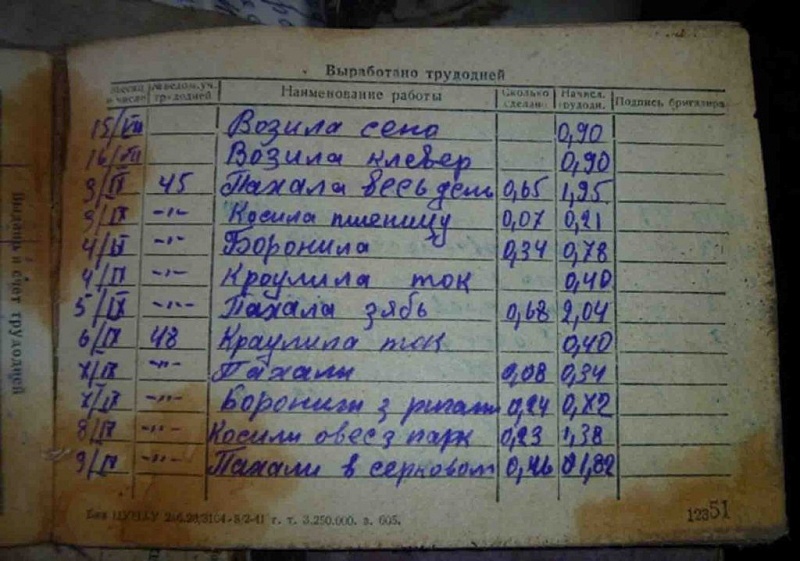 Выработано трудодней
Месяц и число № ведом. уч. трудодней Наименование работы Сколько сделано Начисл. трудодн. Подпись бригадира
15/VII Возила сено 0,90
16/VII Возила клевер 0,90
3/IX 45 Пахала весь день 0,65 1,95
3/IX -"- Косила пшеницу 0,07 0,21
4/IX -"- Боронила 0,34 0,78
4/IX Кроулила ток 0,40
5/IX -"- Пахала зябь 0,68 2,04
6/IX 48 Краулила ток 0,40
7/IX -"- Пахали 0,08 0,34
7/IX -"- Боронили з 0,24 0,72
8/IX -"- Косили овес з парк 0,23 1,38
9/IX -"- Пахали в 0,46 1,82
Выдано в счет трудодней
г. т. 3.250.000. з. 605.
12351